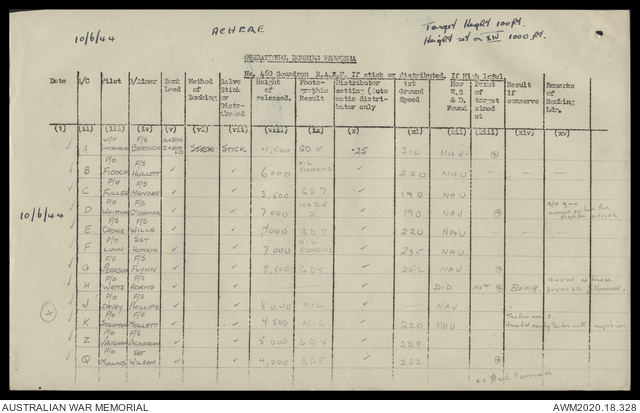 10/6/44 ACHERE Target Height 100ft.
Height set on XIV 1000 ft.
OPERATIONAL BOMBING PROFORMA
No. 460 Squadron R.A.A.F. If stick or distributed. If High level
Date A/C Pilot B/Aimer Bomb Load Method of Bombing Salvo Stick or Distributed Height of released. Photographic Result Distributor setting (Automatic distributor only 1st Ground Speed How W.S & D. Found Point of target aimed at Result if conserve Remarks of Bombing Ldr.
(i) (ii) (iii) (iv) (v) (vi) (vii) (viii) (ix) (x) (xi) (xii) (xiii) (xiv) (xv)
A W/O F/S BERTUCH STICK 4,500 GD5 .25 210 NAV.
B P/O FIDOCK F/S HULLETT 6000 NIL 220 NAV
C P/O FULLER F/S MANDER 3,500 GD7 190 NAV
10/6/44 D P/O F/S O'CONNOR 7000 HAZE 190 NAV
E F/S CROWE F/S WILLE 7000 GD7 220 NAV
F P/O LUNN SGT HUNKIN 7,000 NIL 235 NAV
G P/O PEARSON F/S FLYNN 8,500 GD5 252 NAV
H P/O WATTS F/S ADAMS DID NOT BOMB.
J P/O DAVEY F/S PHILLIPS 8000 NIL NAV
K P/O SOLOMON F/S MOLLETT 4,500 NIL 220 NAV
Z P/O VAUGHAN F/S DICKERSON 5000 GD4 228
Q P/O MULLINS SGT WILSON 4,000 GD5 222
AUSTRALIAN WAR MEMORIAL AWM2020.18.328